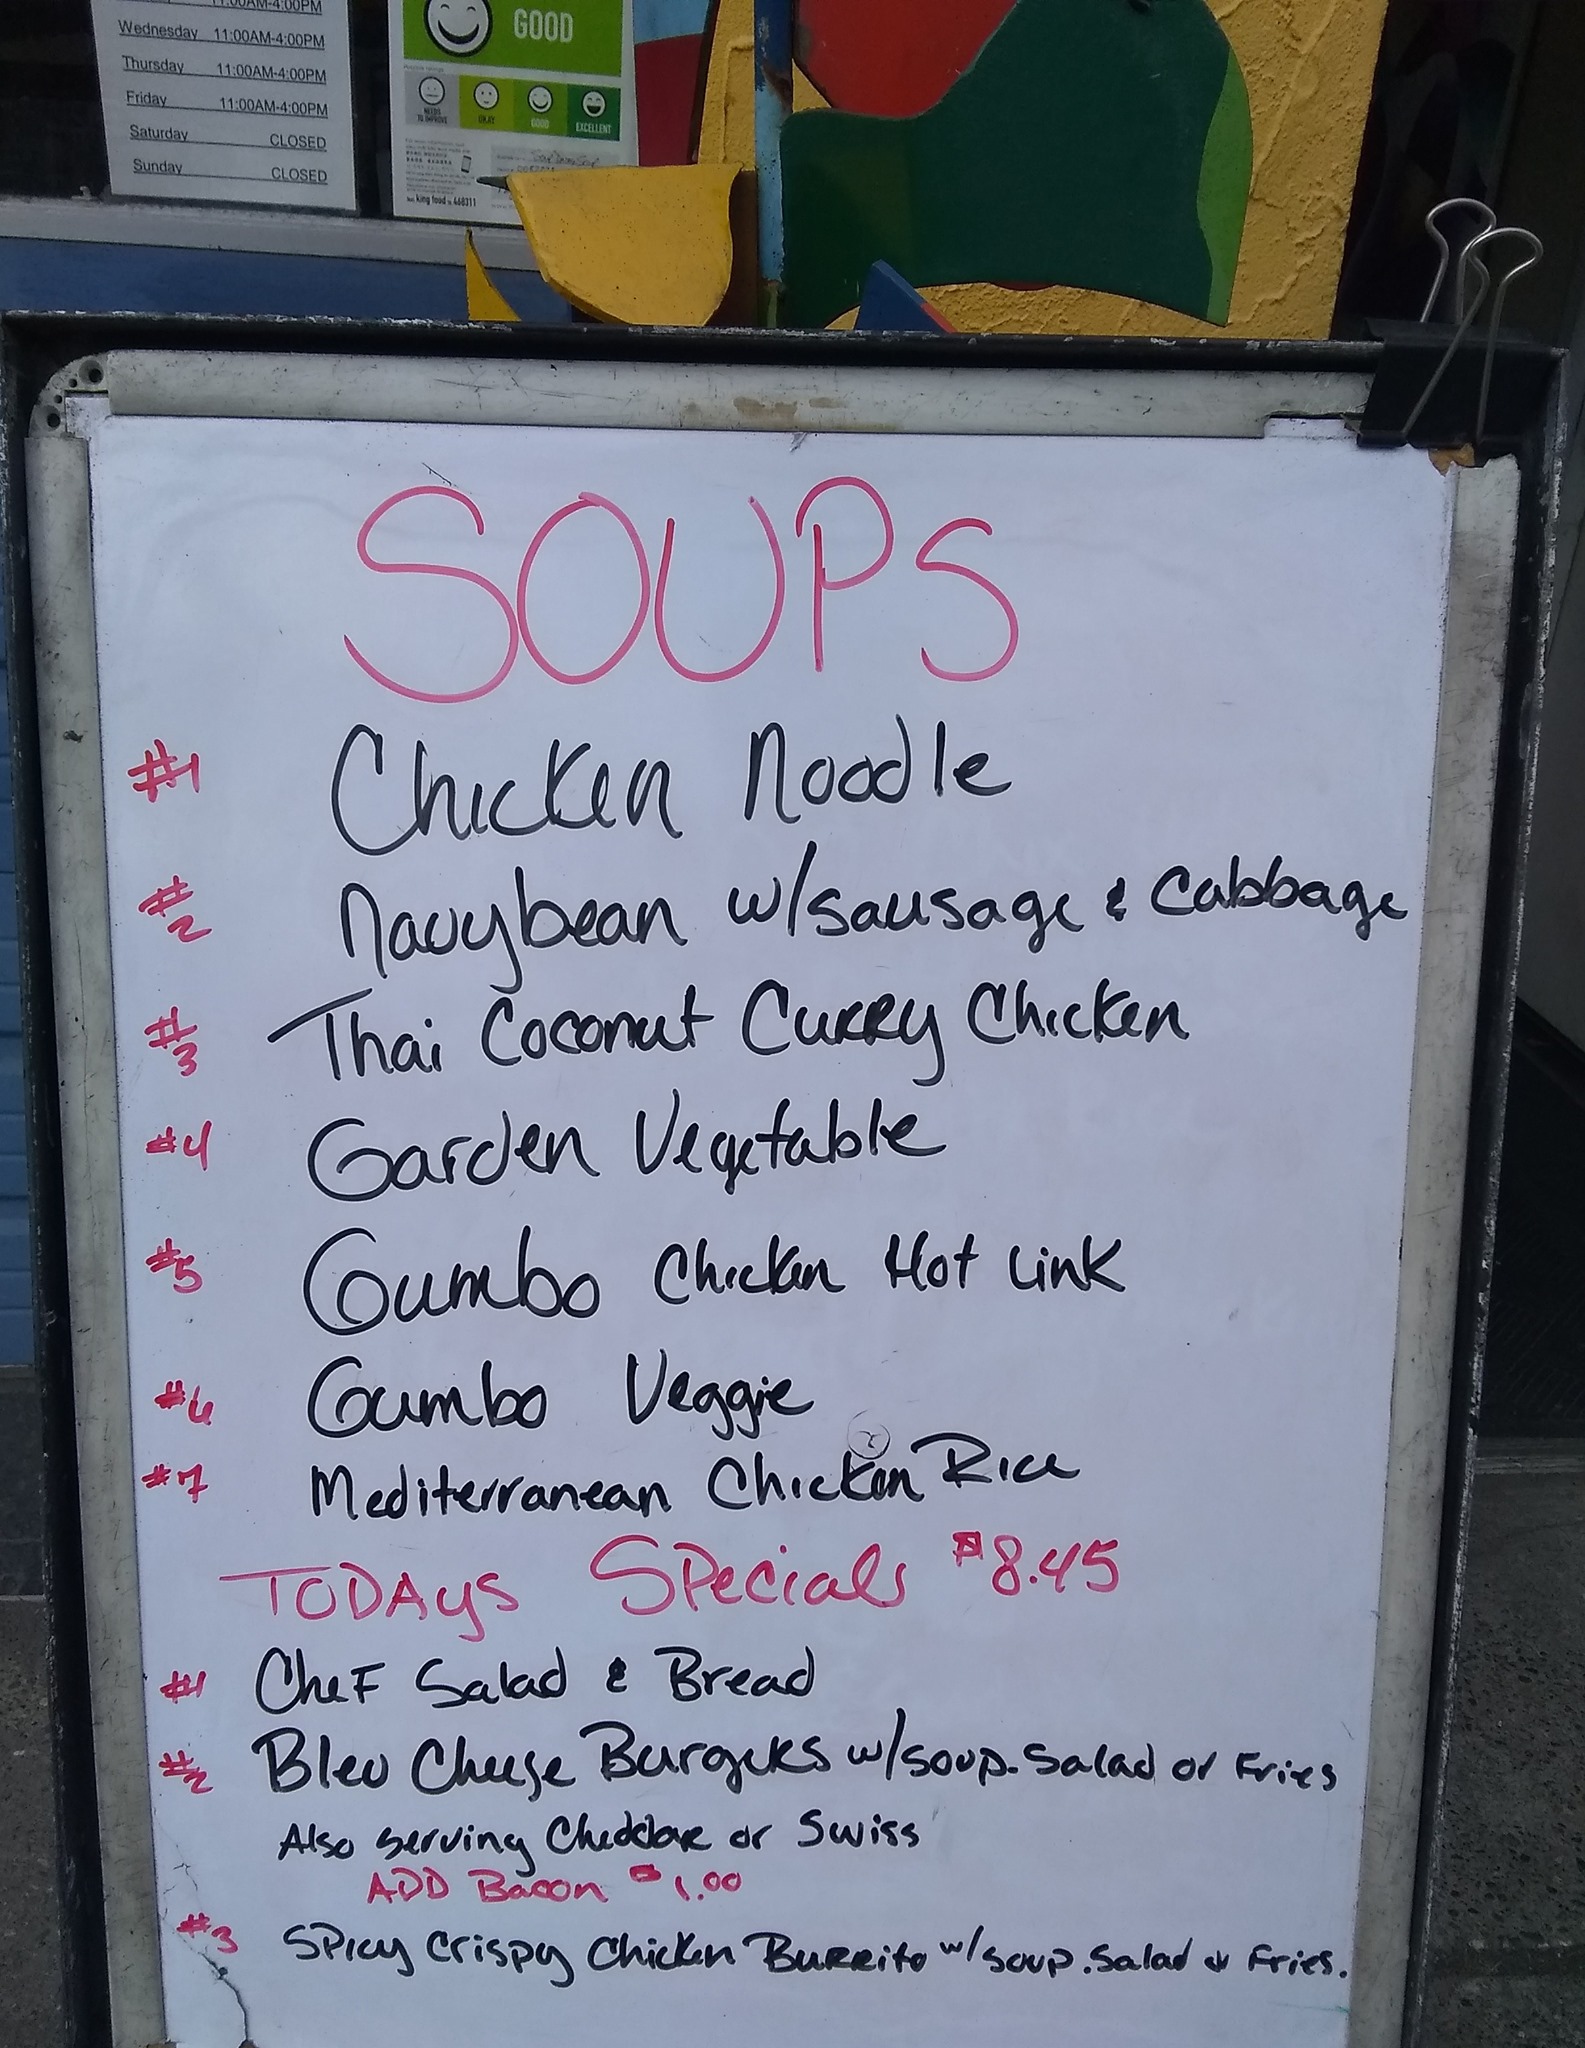 11:00AM-4:00PM
Wednesday 11:00AM-4:00PM
Thursday 11:00AM-4:00PM
Friday 11:00AM-4:00PM
Saturday CLOSED
Sunday CLOSED
GOOD
NEEDS TO IMPROVE OKAY GOOD EXCELLENT
king food to 468311
SOUPS
#1 Chicken Noodle
#2 Navybean w/sausage & Cabbage
#3 Thai Coconut Curry Chicken
#4 Garden Vegetable
#5 Gumbo Chicken Hot Link
#6 Gumbo Veggie
#7 Mediterranean Chicken Rice
TODAYS SPecials $8.45
#1 Chef Salad & Bread
#2 Bleu Cheese Burgers w/soup.Salad or Fries
Also serving Cheddar or Swiss
ADD Bacon $1.00
#3 Spicy Crispy Chicken Burrito w/soup.Salad or Fries.